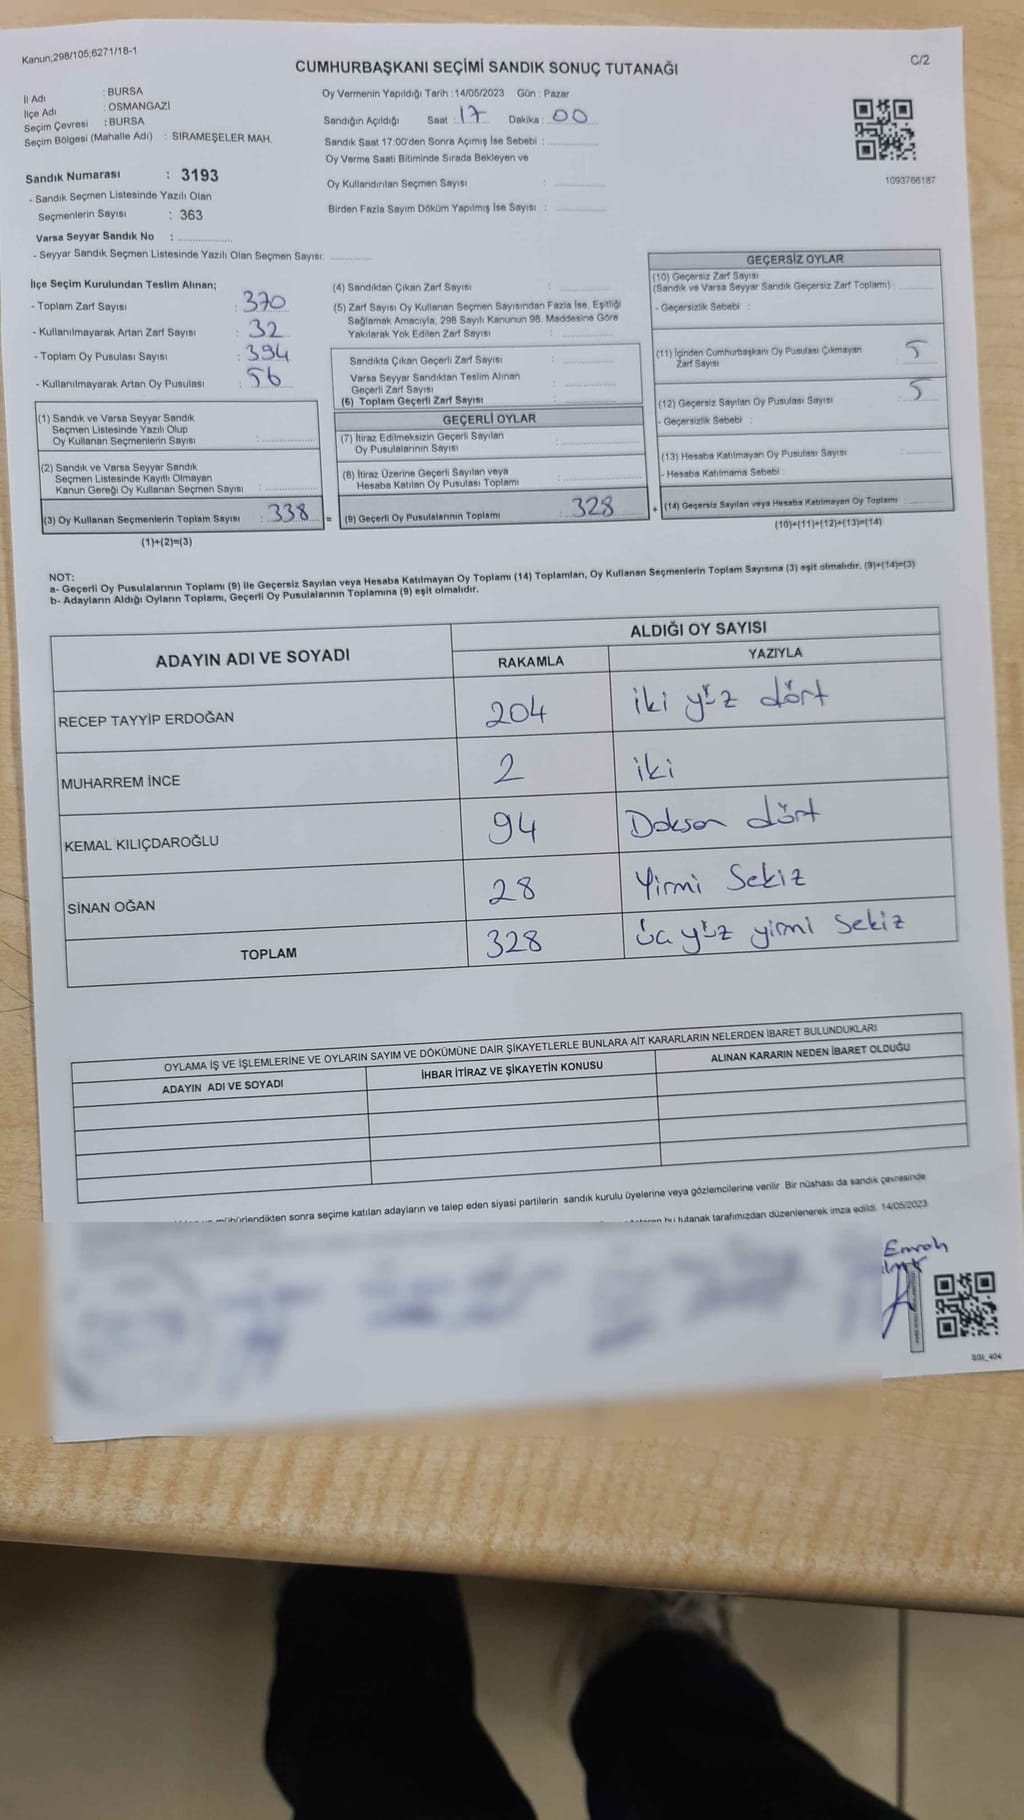 Kanun;298/105;6271/18-1
C/2
CUMHURBAŞKANI SEÇİMİ SANDIK SONUÇ TUTANAĞI
İl Adı : BURSA
İlçe Adı : OSMANGAZİ
Seçim Çevresi : BURSA
Seçim Bölgesi (Mahalle Adı) : SIRAMEŞELER MAH.
Sandık Numarası : 3193
- Sandık Seçmen Listesinde Yazılı Olan
Seçmenlerin Sayısı : 363
Varsa Seyyar Sandık No :
- Seyyar Sandık Seçmen Listesinde Yazılı Olan Seçmen Sayısı:
Oy Vermenin Yapıldığı Tarih : 14/05/2023 Gün : Pazar
Sandığın Açıldığı Saat : 17 Dakika : 00
Sandık Saat 17:00'den Sonra Açımış İse Sebebi :
Oy Verme Saati Bitiminde Sırada Bekleyen ve
Oy Kullandırılan Seçmen Sayısı :
Birden Fazla Sayım Döküm Yapılmış İse Sayısı :
1093766187
İlçe Seçim Kurulundan Teslim Alınan;
- Toplam Zarf Sayısı : 370
- Kullanılmayarak Artan Zarf Sayısı : 32
- Toplam Oy Pusulası Sayısı : 394
- Kullanılmayarak Artan Oy Pusulası : 56
(1) Sandık ve Varsa Seyyar Sandık
Seçmen Listesinde Yazılı Olup
Oy Kullanan Seçmenlerin Sayısı :
(2) Sandık ve Varsa Seyyar Sandık
Seçmen Listesinde Kayıtlı Olmayan
Kanun Gereği Oy Kullanan Seçmen Sayısı :
(3) Oy Kullanan Seçmenlerin Toplam Sayısı : 338 =
(1)+(2)=(3)
(4) Sandıktan Çıkan Zarf Sayısı :
(5) Zarf Sayısı Oy Kullanan Seçmen Sayısından Fazla İse, Eşitliği
Sağlamak Amacıyla, 298 Sayılı Kanunun 98. Maddesine Göre
Yakılarak Yok Edilen Zarf Sayısı :
Sandıkta Çıkan Geçerli Zarf Sayısı :
Varsa Seyyar Sandıktan Teslim Alınan
Geçerli Zarf Sayısı :
(6) Toplam Geçerli Zarf Sayısı :
GEÇERLİ OYLAR
(7) İtiraz Edilmeksizin Geçerli Sayılan
Oy Pusulalarının Sayısı :
(8) İtiraz Üzerine Geçerli Sayılan veya
Hesaba Katılan Oy Pusulası Toplamı :
(9) Geçerli Oy Pusulalarının Toplamı : 328 +
GEÇERSİZ OYLAR
(10) Geçersiz Zarf Sayısı
(Sandık ve Varsa Seyyar Sandık Geçersiz Zarf Toplamı) :
- Geçersizlik Sebebi :
(11) İçinden Cumhurbaşkanı Oy Pusulası Çıkmayan
Zarf Sayısı : 5
(12) Geçersiz Sayılan Oy Pusulası Sayısı : 5
- Geçersizlik Sebebi :
(13) Hesaba Katılmayan Oy Pusulası Sayısı :
- Hesaba Katılmama Sebebi :
(14) Geçersiz Sayılan veya Hesaba Katılmayan Oy Toplamı :
(10)+(11)+(12)+(13)=(14)
NOT:
a- Geçerli Oy Pusulalarının Toplamı (9) ile Geçersiz Sayılan veya Hesaba Katılmayan Oy Toplamı (14) Toplamları, Oy Kullanan Seçmenlerin Toplam Sayısına (3) eşit olmalıdır. (9)+(14)=(3)
b- Adayların Aldığı Oyların Toplamı, Geçerli Oy Pusulalarının Toplamına (9) eşit olmalıdır.
ADAYIN ADI VE SOYADI
ALDIĞI OY SAYISI
RAKAMLA YAZIYLA
RECEP TAYYİP ERDOĞAN 204 iki yüz dört
MUHARREM İNCE 2 iki
KEMAL KILIÇDAROĞLU 94 Doksan dört
SİNAN OĞAN 28 Yirmi Sekiz
TOPLAM 328 üç yüz yirmi Sekiz
OYLAMA İŞ VE İŞLEMLERİNE VE OYLARIN SAYIM VE DÖKÜMÜNE DAİR ŞİKAYETLERLE BUNLARA AİT KARARLARIN NELERDEN İBARET BULUNDUKLARI
ADAYIN ADI VE SOYADI
İHBAR İTİRAZ VE ŞİKAYETİN KONUSU
ALINAN KARARIN NEDEN İBARET OLDUĞU
mühürlendikten sonra seçime katılan adayların ve talep eden siyasi partilerin sandık kurulu üyelerine veya gözlemcilerine verilir. Bir nüshası da sandık çevresinde
bu tutanak tarafımızdan düzenlenerek imza edildi. 14/05/2023
Emrah
SSI_404